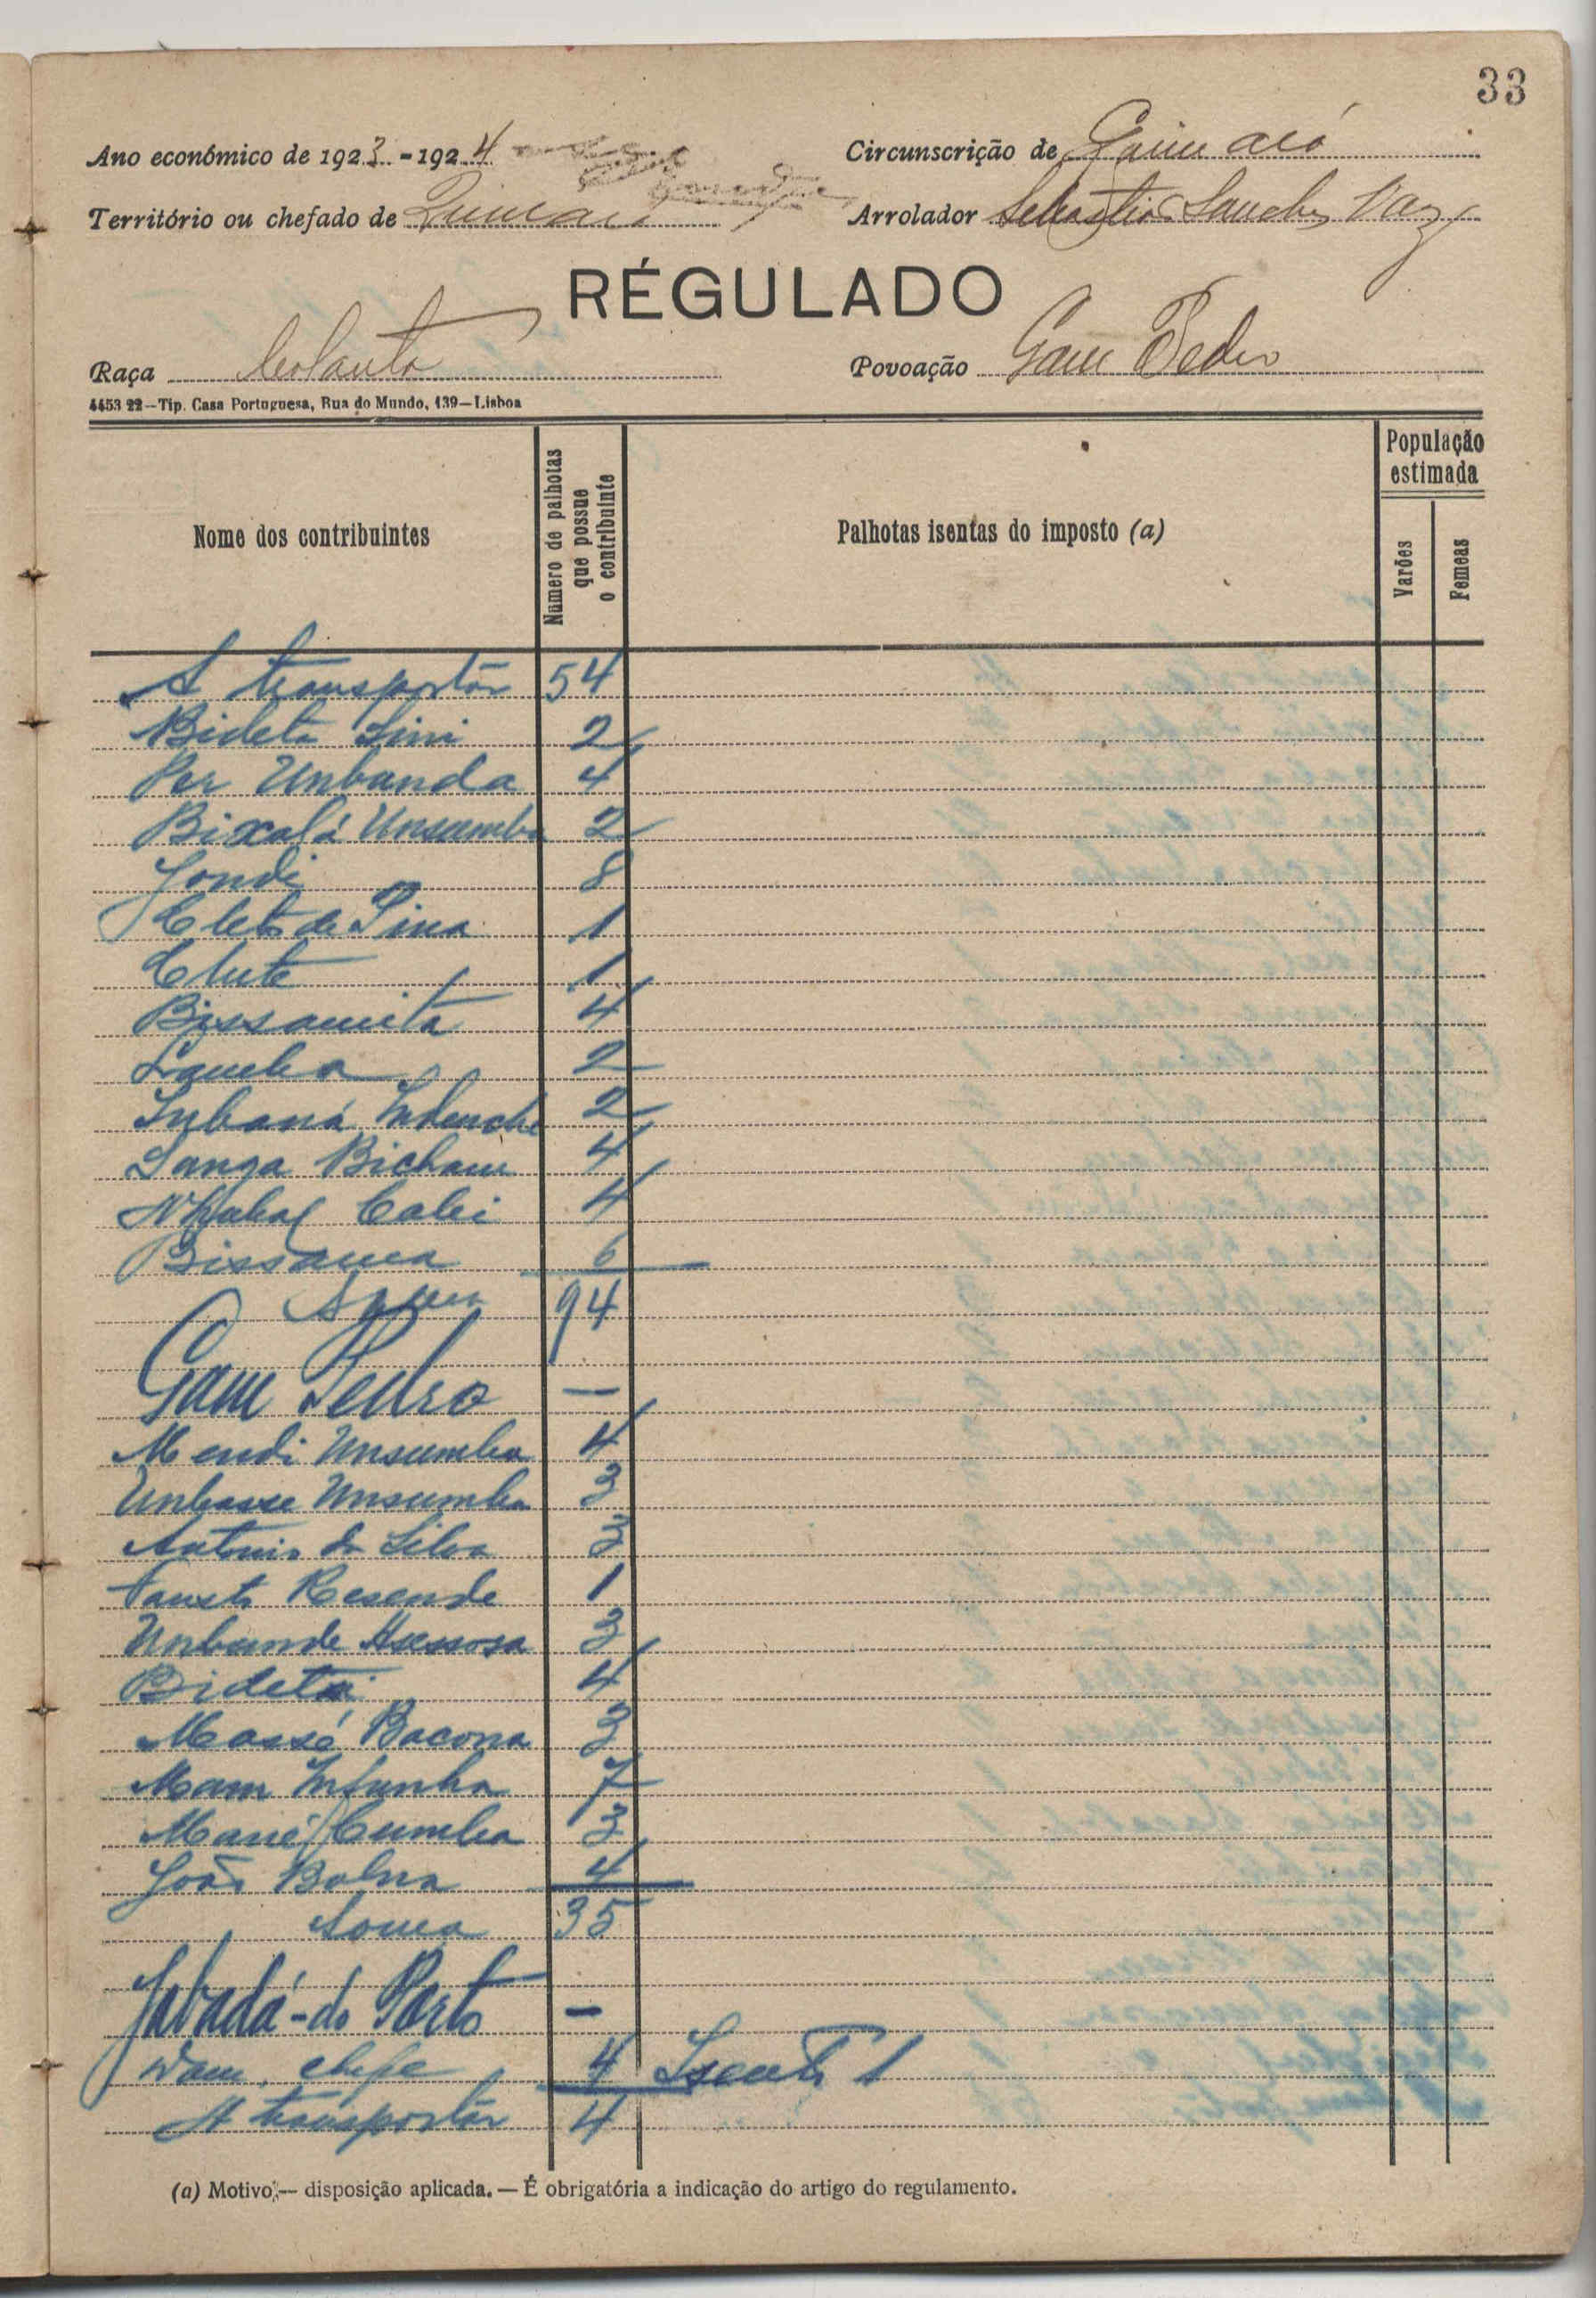 33
Ano económico de 1923-1924
Circunscrição de
Território ou chefado de
Arrolador Sebastião Sanches Vaz
RÉGULADO
Raça
Povoação Gam Pedro
4453 22—Tip. Casa Portuguesa, Rua do Mundo, 139—Lisboa
Nome dos contribuintes
Número de palhotas que possue o contribuinte
Palhotas isentas do imposto (a)
População estimada
Varões
Femeas
A transportár 54
Bideta 2
Per Unbanda 4
Bixalá Unsumba 2
Jondi 8
Cleto de Pina 1
Clute 1
Bissamita 4
2
2
Sanga 4
4
Bissama 6
94
Gam Pedro —
Mendi Unsumba 4
Unbasse Unsumba 3
Antonio da Silva 3
Fausto Resende 1
Unbunde 3
Bideta 4
Massé Bacona 3
Mam Infunha 7
Mané Cumba 3
João Balna 4
Soma 35
Jabadá-do Porto —
Wam, chefe 4 Isento 1
A transportár 4
(a) Motivo;— disposição aplicada. — É obrigatória a indicação do artigo do regulamento.